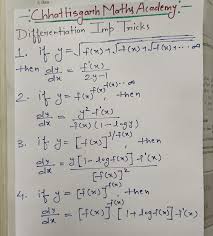 "Chhattisgarh Maths Academy"
Differentiation Imp Tricks
1. if y = √f(x)+√f(x)+√f(x)+... ∞
then dy/dx = f'(x)/2y-1
2. if y = f(x)^f(x)^f(x)...∞ then
dy/dx = y²·f'(x)/f(x)(1-log y)
3. if y = [f(x)]^1/f(x), then
dy/dx = y[1-logf(x)]·f'(x)/[f(x)]²
4. if y = [f(x)]^f(x), then
dy/dx = [f(x)]^f(x) [1+logf(x)]·f'(x)